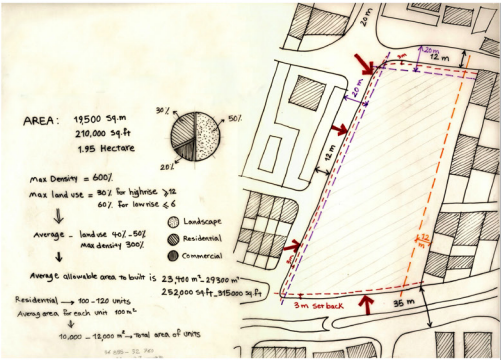 AREA: 19,500 sq.m
210,000 sq.ft
1.95 Hectare
30%
50%
20%
Max Density = 600%
Max land use = 30% for highrise ≥12
60% for lowrise ≤ 6
Average - landuse 40%-50%
Max density 300%
Landscape
Residential
Commercial
Average allowable area to built is 23,400 m²-29300 m²
252,000 sq.ft-315000 sq.ft
Residential → 100-120 units
Average area for each unit 100m²
10,000 - 12,000 m² → Total area of units
20 m
20m
12 m
20 m
12 m
12 m
3 m setback
35 m